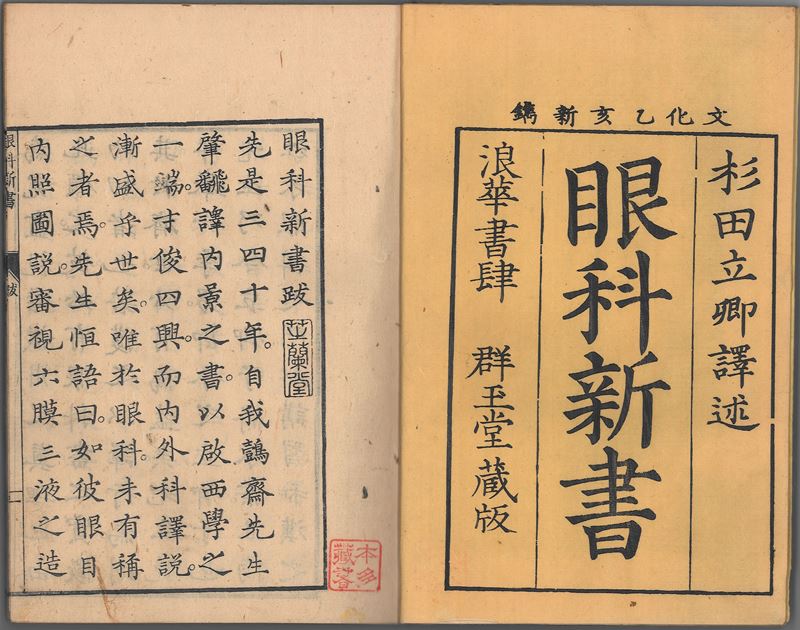 文化乙亥新鐫
杉田立卿譯述
眼科新書
浪華書肆　群玉堂藏版
眼科新書跋　芝蘭堂
先是三四十年。自我鷧齋先生
肇飜譯內景之書。以啟西學之
一端。才俊四興。而內外科譯說。
漸盛乎世矣。唯於眼科。未有稱
之者焉。先生恒語曰。如彼眼目
內照圖說。審視六膜三液之造
眼科新書　跋　一
本多